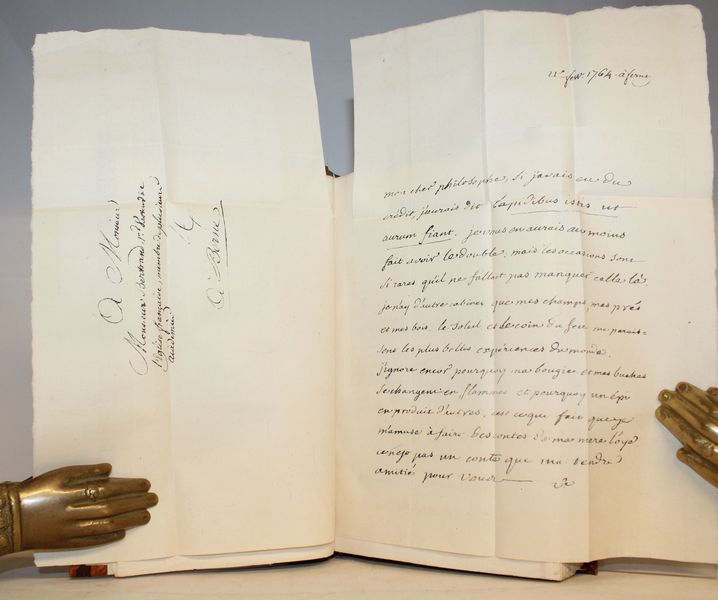 A Monsieur
Monsieur Bertrand 1er Pasteur
l'Eglise française, membre de plusieurs
académies
A Berne
11e fevr. 1764. à ferney
mon cher philosophe, si javais eu du
credit, j'aurais dit lapidibus istis ut
aurum fiant. je vous en aurais au moins
fait avoir le double. mais les occasions sont
si rares qu'il ne fallait pas manquer celle là.
je n'ay d'autre cabinet que mes champs, mes prés
et mes bois. le soleil et le coin du feu me parais=
sent les plus belles expériences du monde.
j'ignore encor pourquoy ma bougie et mes buches
se changent en flammes et pourquoy un épi
en produit d'autres. c'est ce que fait que je
m'amuse à faire des contes de ma mere l'oye
ce n'est pas un conte que ma tendre
amitié pour vous V